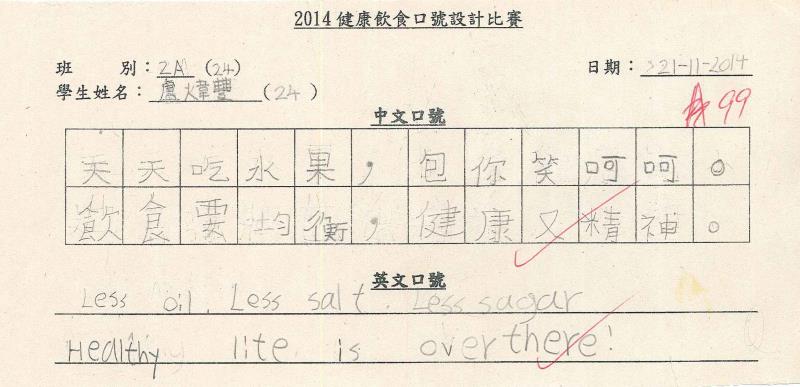 2014 健康飲食口號設計比賽
班 別：2A (24)
日期：21-11-2014
學生姓名：盧煒豐 (24)
99
中文口號
天天吃水果，包你笑呵呵。
飲食要均衡，健康又精神。
英文口號
Less oil. Less salt. Less sagar
Healthy lite is over there!